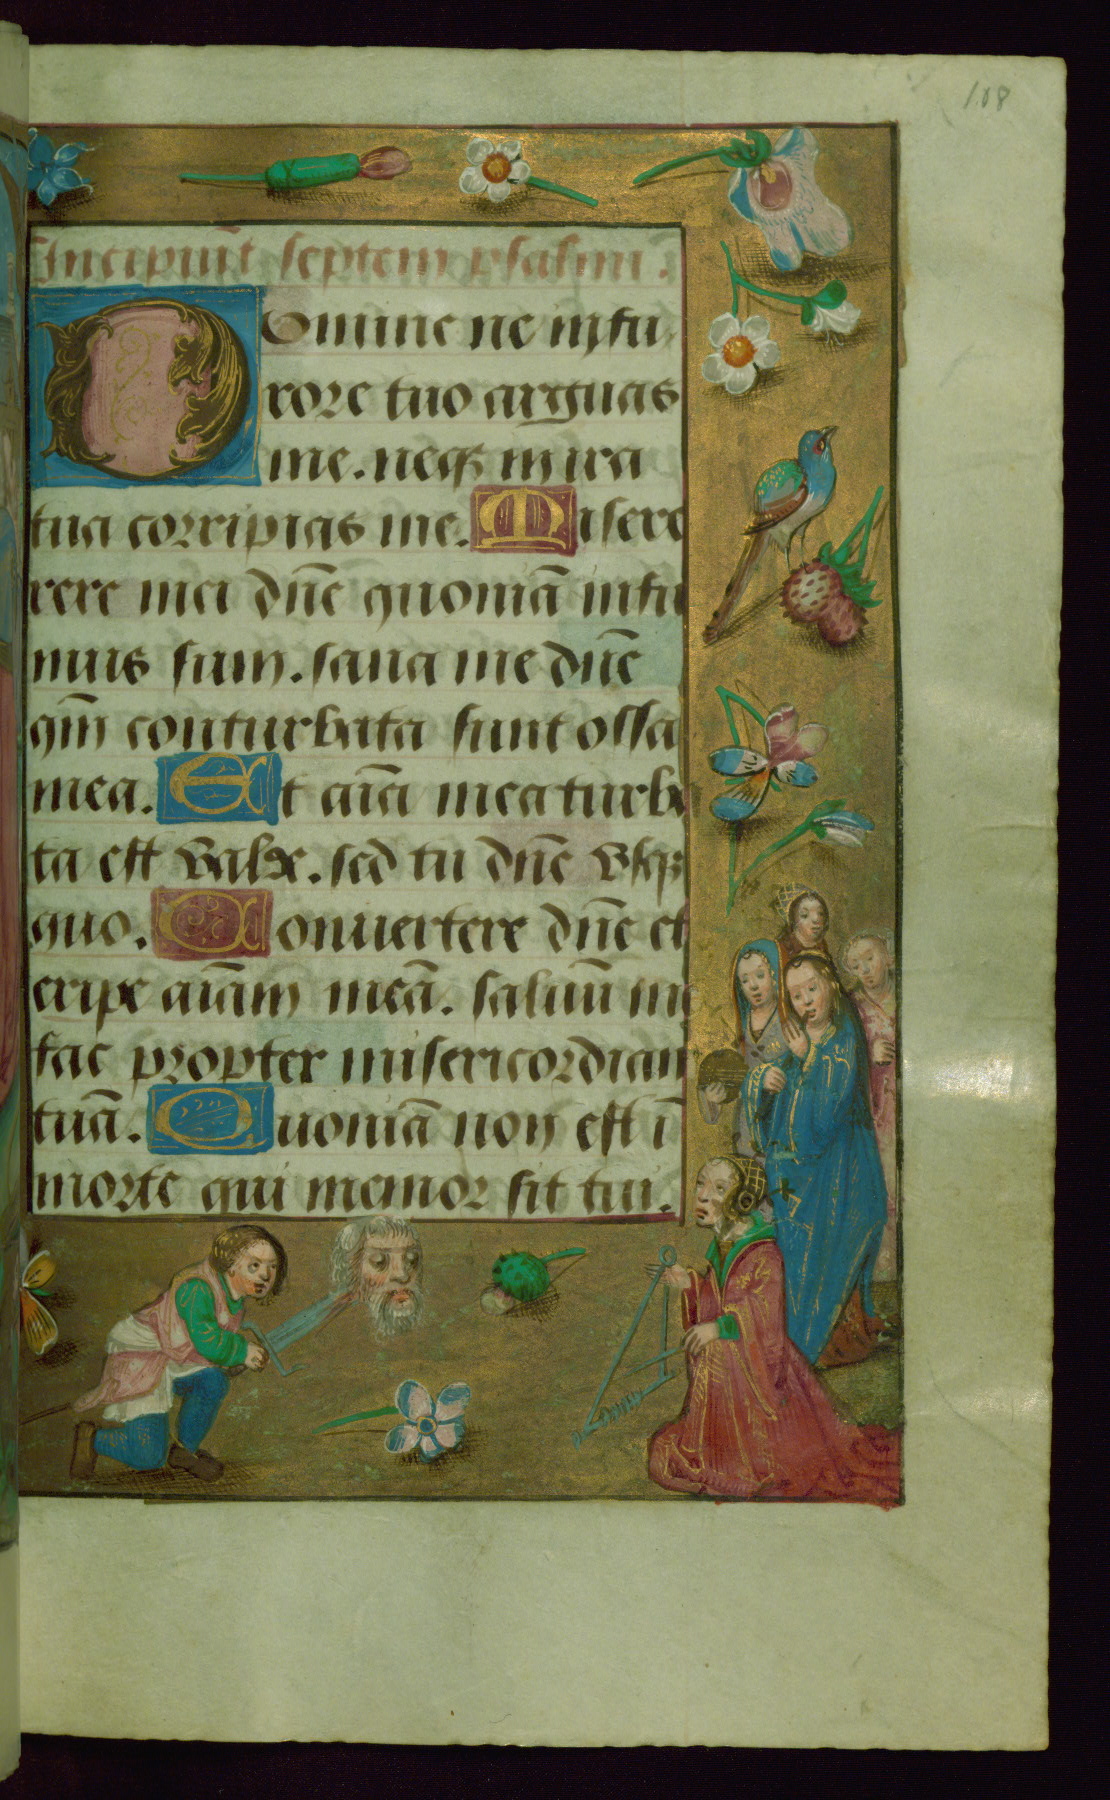 108
Incipiu͂t septem psalmi.
Domine ne in fu
rore tuo arguas
me. neqꝫ in ira
tua corripias me. Misere
rere mei dn͂e quoniā infir
mus sum. sana me dn͂e
qm̄ conturbata sunt ossa
mea. Et aīa mea turba
ta est valde. sed tu dn͂e vsqꝫ
quo. Conuertere dn͂e et
eripe aīam meā. saluū me
fac propter misericordiam
tuā. Quoniā non est ī
morte qui memor sit tui.